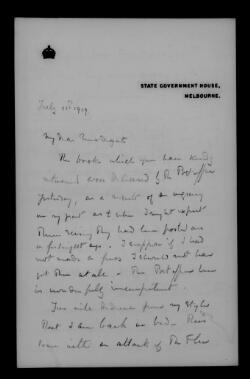 STATE GOVERNMENT HOUSE,
MELBOURNE.
July 11th 1919.
My dear
The books which you have kindly
returned were delivered by the Post Office
yesterday, as a result of an inquiry
on my part as to when I might expect
them seeing they had been posted
a fortnight ago. I suppose if I had
not made a fuss I should not have
got them at all. The Post Office here
is wonderfully incompetent.
You will deduce from my style
that I am back in bed. This
time with an attack of the Flu